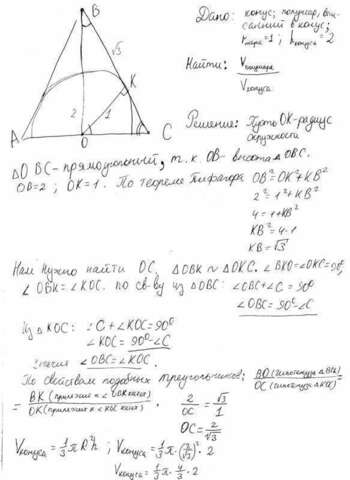 B
√3
K
2
1
A
O
C
Дано: конус; полушар, впи-
санный в конус;
rшара=1; hконуса=2
Найти: Vполушара
Vконуса
Решение: Пусто OK-радиус
окружности
△OBC-прямоугольный, т.к OB-высота △OBC.
OB=2; OK=1. По теореме Пифагора OB²=OK²+KB²
2²=1²+KB²
4=1+KB²
KB²=4-1
KB=√3
Нам нужно найти OC. △OBK ∾ △OKC. ∠BKO=∠OKC=90°,
∠OBK=∠KOC. по св-ву из △OBC: ∠OBC+∠C=90°
∠OBC=90°-∠C
Из △KOC: ∠C+∠KOC=90°
∠KOC=90°-∠C
Значит ∠OBC=∠KOC.
По свойствам подобных треугольников:
BO(гипотенуза △BOK)
OC(гипотенуза △KOC)
=
BK(прилежит к ∠OBK катет)
OK(прилежит к ∠KOC катет)
.
2/OC=√3/1
OC=2/√3
Vконуса=1/3πR²h; Vконуса=1/3π·(2/√3)²·2
Vконуса=1/3π·4/3·2